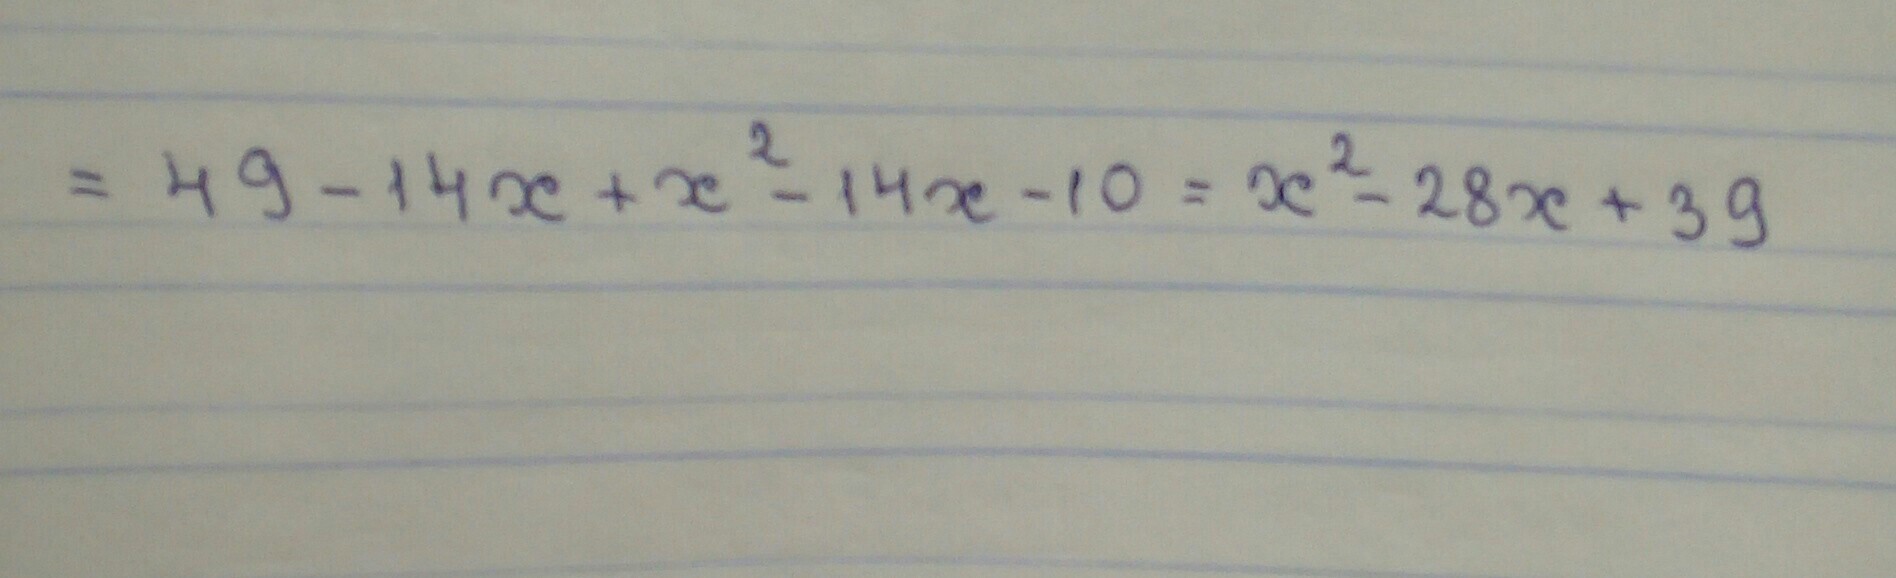 = 49 - 14x + x² - 14x - 10 = x² - 28x + 39